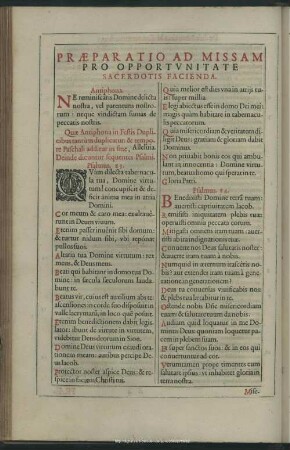 PRÆPARATIO AD MISSAM
PRO OPPORTVNITATE
SACERDOTIS FACIENDA.
Antiphona.
NE reminiscaris Domine delicta
nostra, vel parentum nostro-
rum: neque vindictam sumas de
peccatis nostris.
Quæ Antiphona in Festis Dupli.
tibus tantum duplicatur: & tempo-
re Paschali additur in fine, Alleluia
Deinde dicuntur sequentes Psalmi.
Psalmus 83.
QVàm dilecta taberna-
cula tua, Domine virtu-
tum! concupiscit & de-
ficit anima mea in atria
Domini.
Cor meum & caro mea: exultaue-
runt in Deum viuum.
Etenim passer inuenit sibi domum:
& turtur nidum sibi, vbi reponat
pullos suos.
Altaria tua Domine virtutum: rex
meus, & Deus meus.
Beati qui habitant in domo tua Do-
mine: in sæcula sæculorum lauda-
bunt te.
Beatus vir, cuius est auxilium abs te:
ascensiones in corde suo disposuit in
valle lacrymarum, in loco quem posuit.
Etenim benedictionem dabit legis-
lator: ibunt de virtute in virtutem,
videbitur Deus deorum in Sion.
Domine Deus virtutum exaudi ora-
tionem meam: auribus percipe De-
us Iacob.
Protector noster aspice Deus: & re-
spice in faciem Christi tui.
Quia melior est dies vna in atrijs tu-
is: super millia.
Elegi abiectus esse in domo Dei mei:
magis quàm habitare in tabernacu-
lis peccatorum.
Quia misericordiam & veritatem di-
ligit Deus: gratiam & gloriam dabit
Dominus.
Non priuabit bonis eos qui ambu-
lant in innocentia: Domine virtu-
tum, beatus homo qui sperat in te.
Gloria Patri.
Psalmus 84.
BEnedixisti Domine terram tuam:
auertisti captiuitatem Iacob.
Remisisti iniquitatem plebis tuæ:
operuisti omnia peccata eorum.
Mitigasti omnem iram tuam: auer-
tisti ab ira indignationis tuæ.
Conuerte nos Deus salutaris noster:
& auerte iram tuam à nobis.
Nunquid in æternum irasceris no-
bis? aut extendes iram tuam à gene-
ratione in generationem?
Deus tu conuersus viuificabis nos:
& plebs tua lætabitur in te.
Ostende nobis Domine misericordiam
tuam: & salutare tuum da nobis.
Audiam quid loquatur in me Do-
minus Deus: quoniam loquetur pa-
cem in plebem suam.
Et super sanctos suos: & in eos qui
conuertuntur ad cor.
Veruntamen prope timentes eum
salutare ipsius: vt inhabitet gloria in
terra nostra.
Mise-